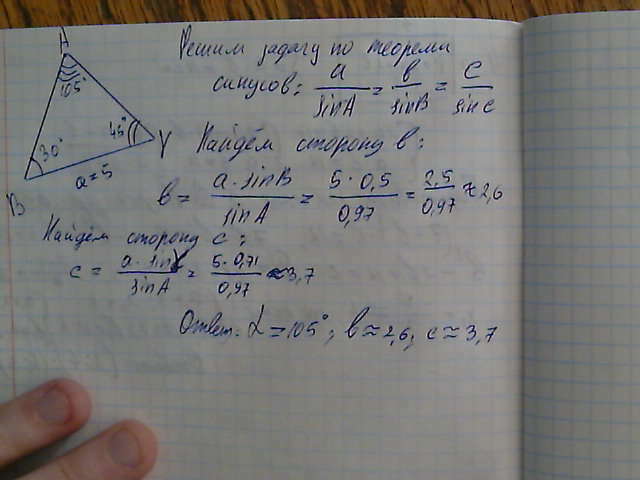 A
105°
45°
γ
30°
a=5
B
Решим задачу по теореми
синусов: a/sinA = b/sinB = c/sin c
Найдём сторону b:
b = a·sinB/sinA = 5·0,5/0,97 = 2,5/0,97 ≈ 2,6
Найдём сторону c:
c = a·sinγ/sinA = 5·0,71/0,97 ≈ 3,7
Ответ: α=105°; b≈2,6; c≈3,7